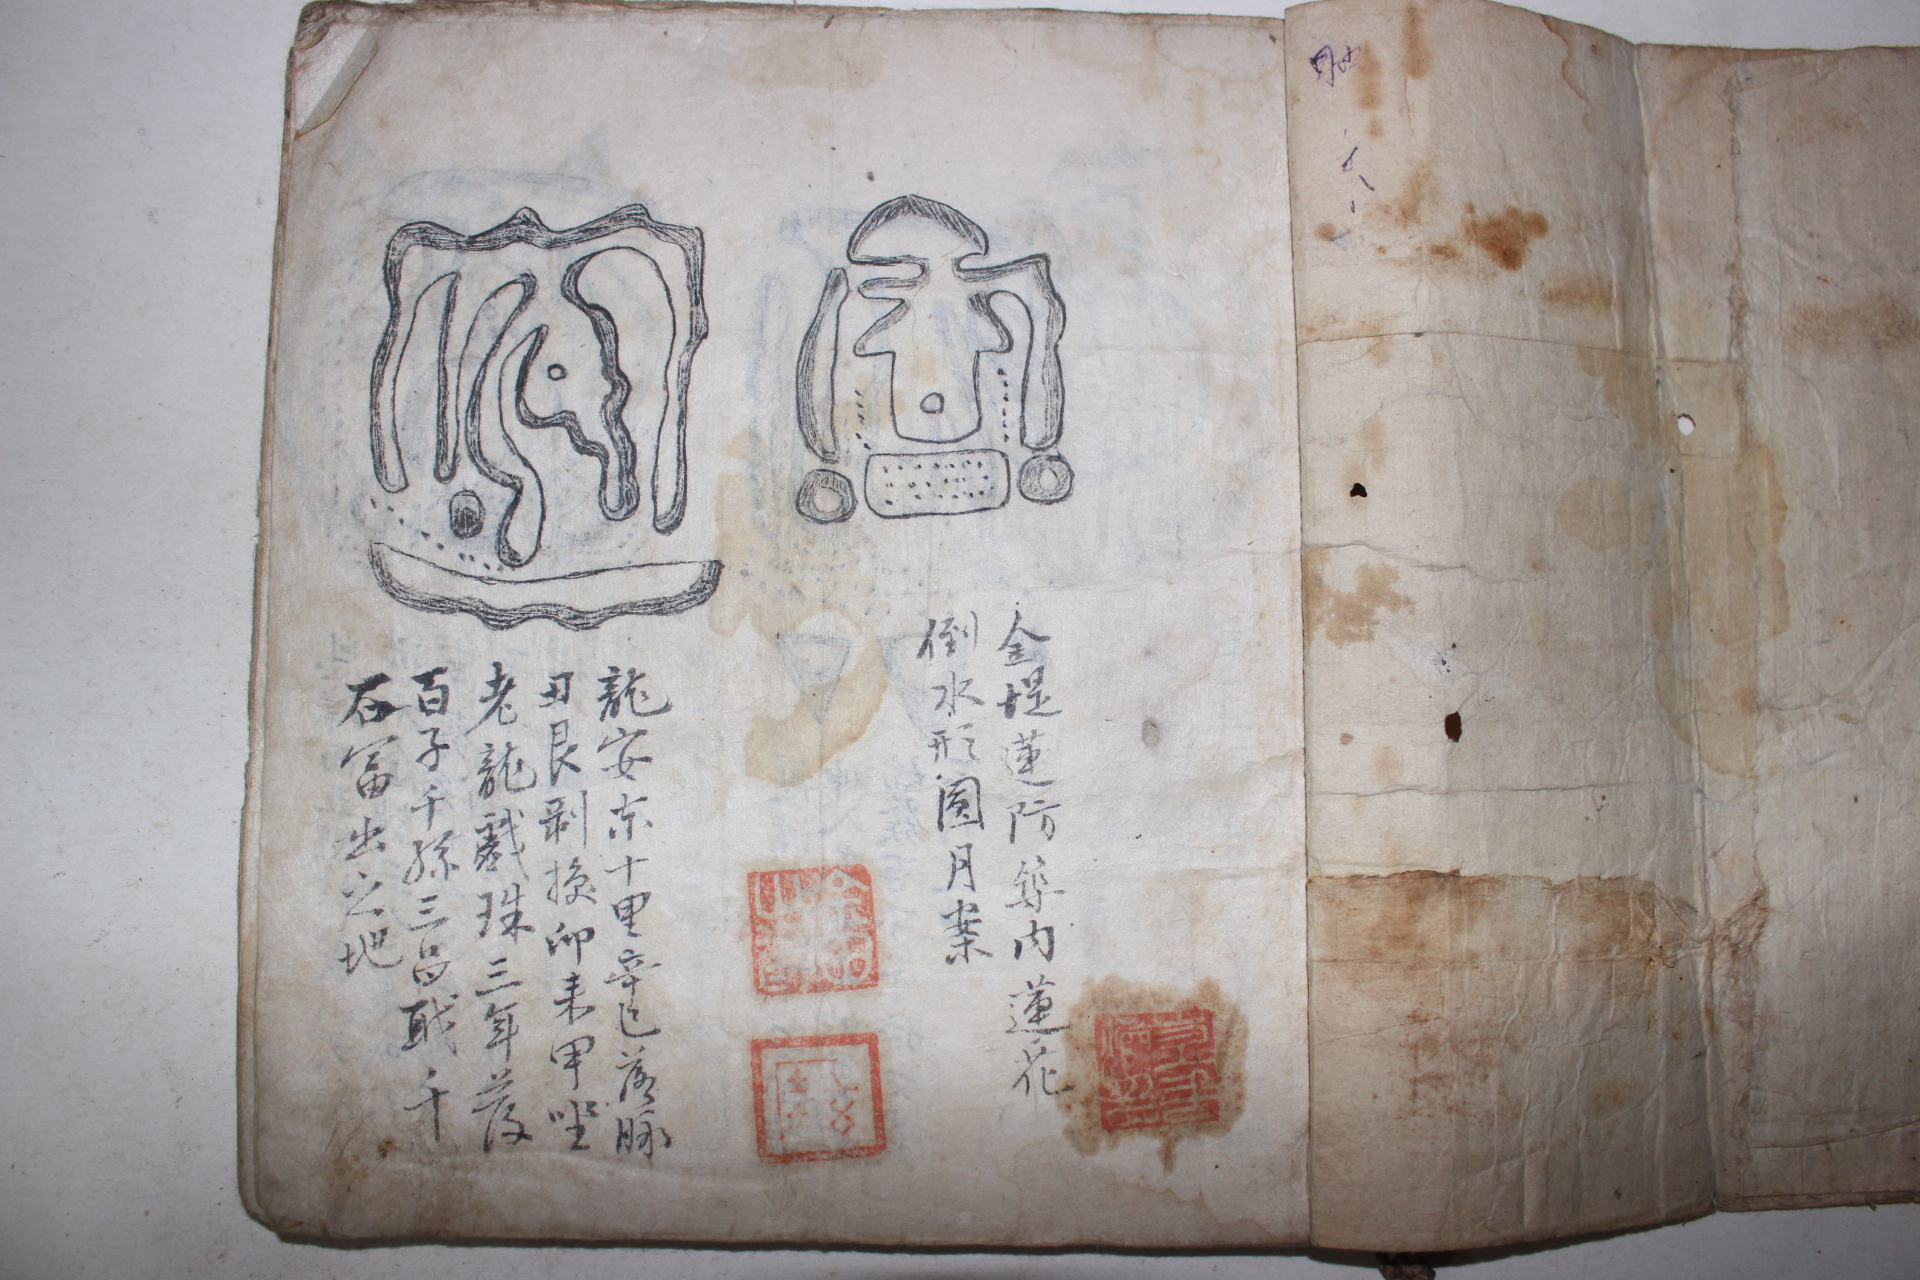 金堤蓮防築内蓮花
倒水形圓月案
龍安東十里辛巳落脉
丑艮剥換卯来甲坐
老龍戲珠三年发
百子千孫三昌 千
石富出之地